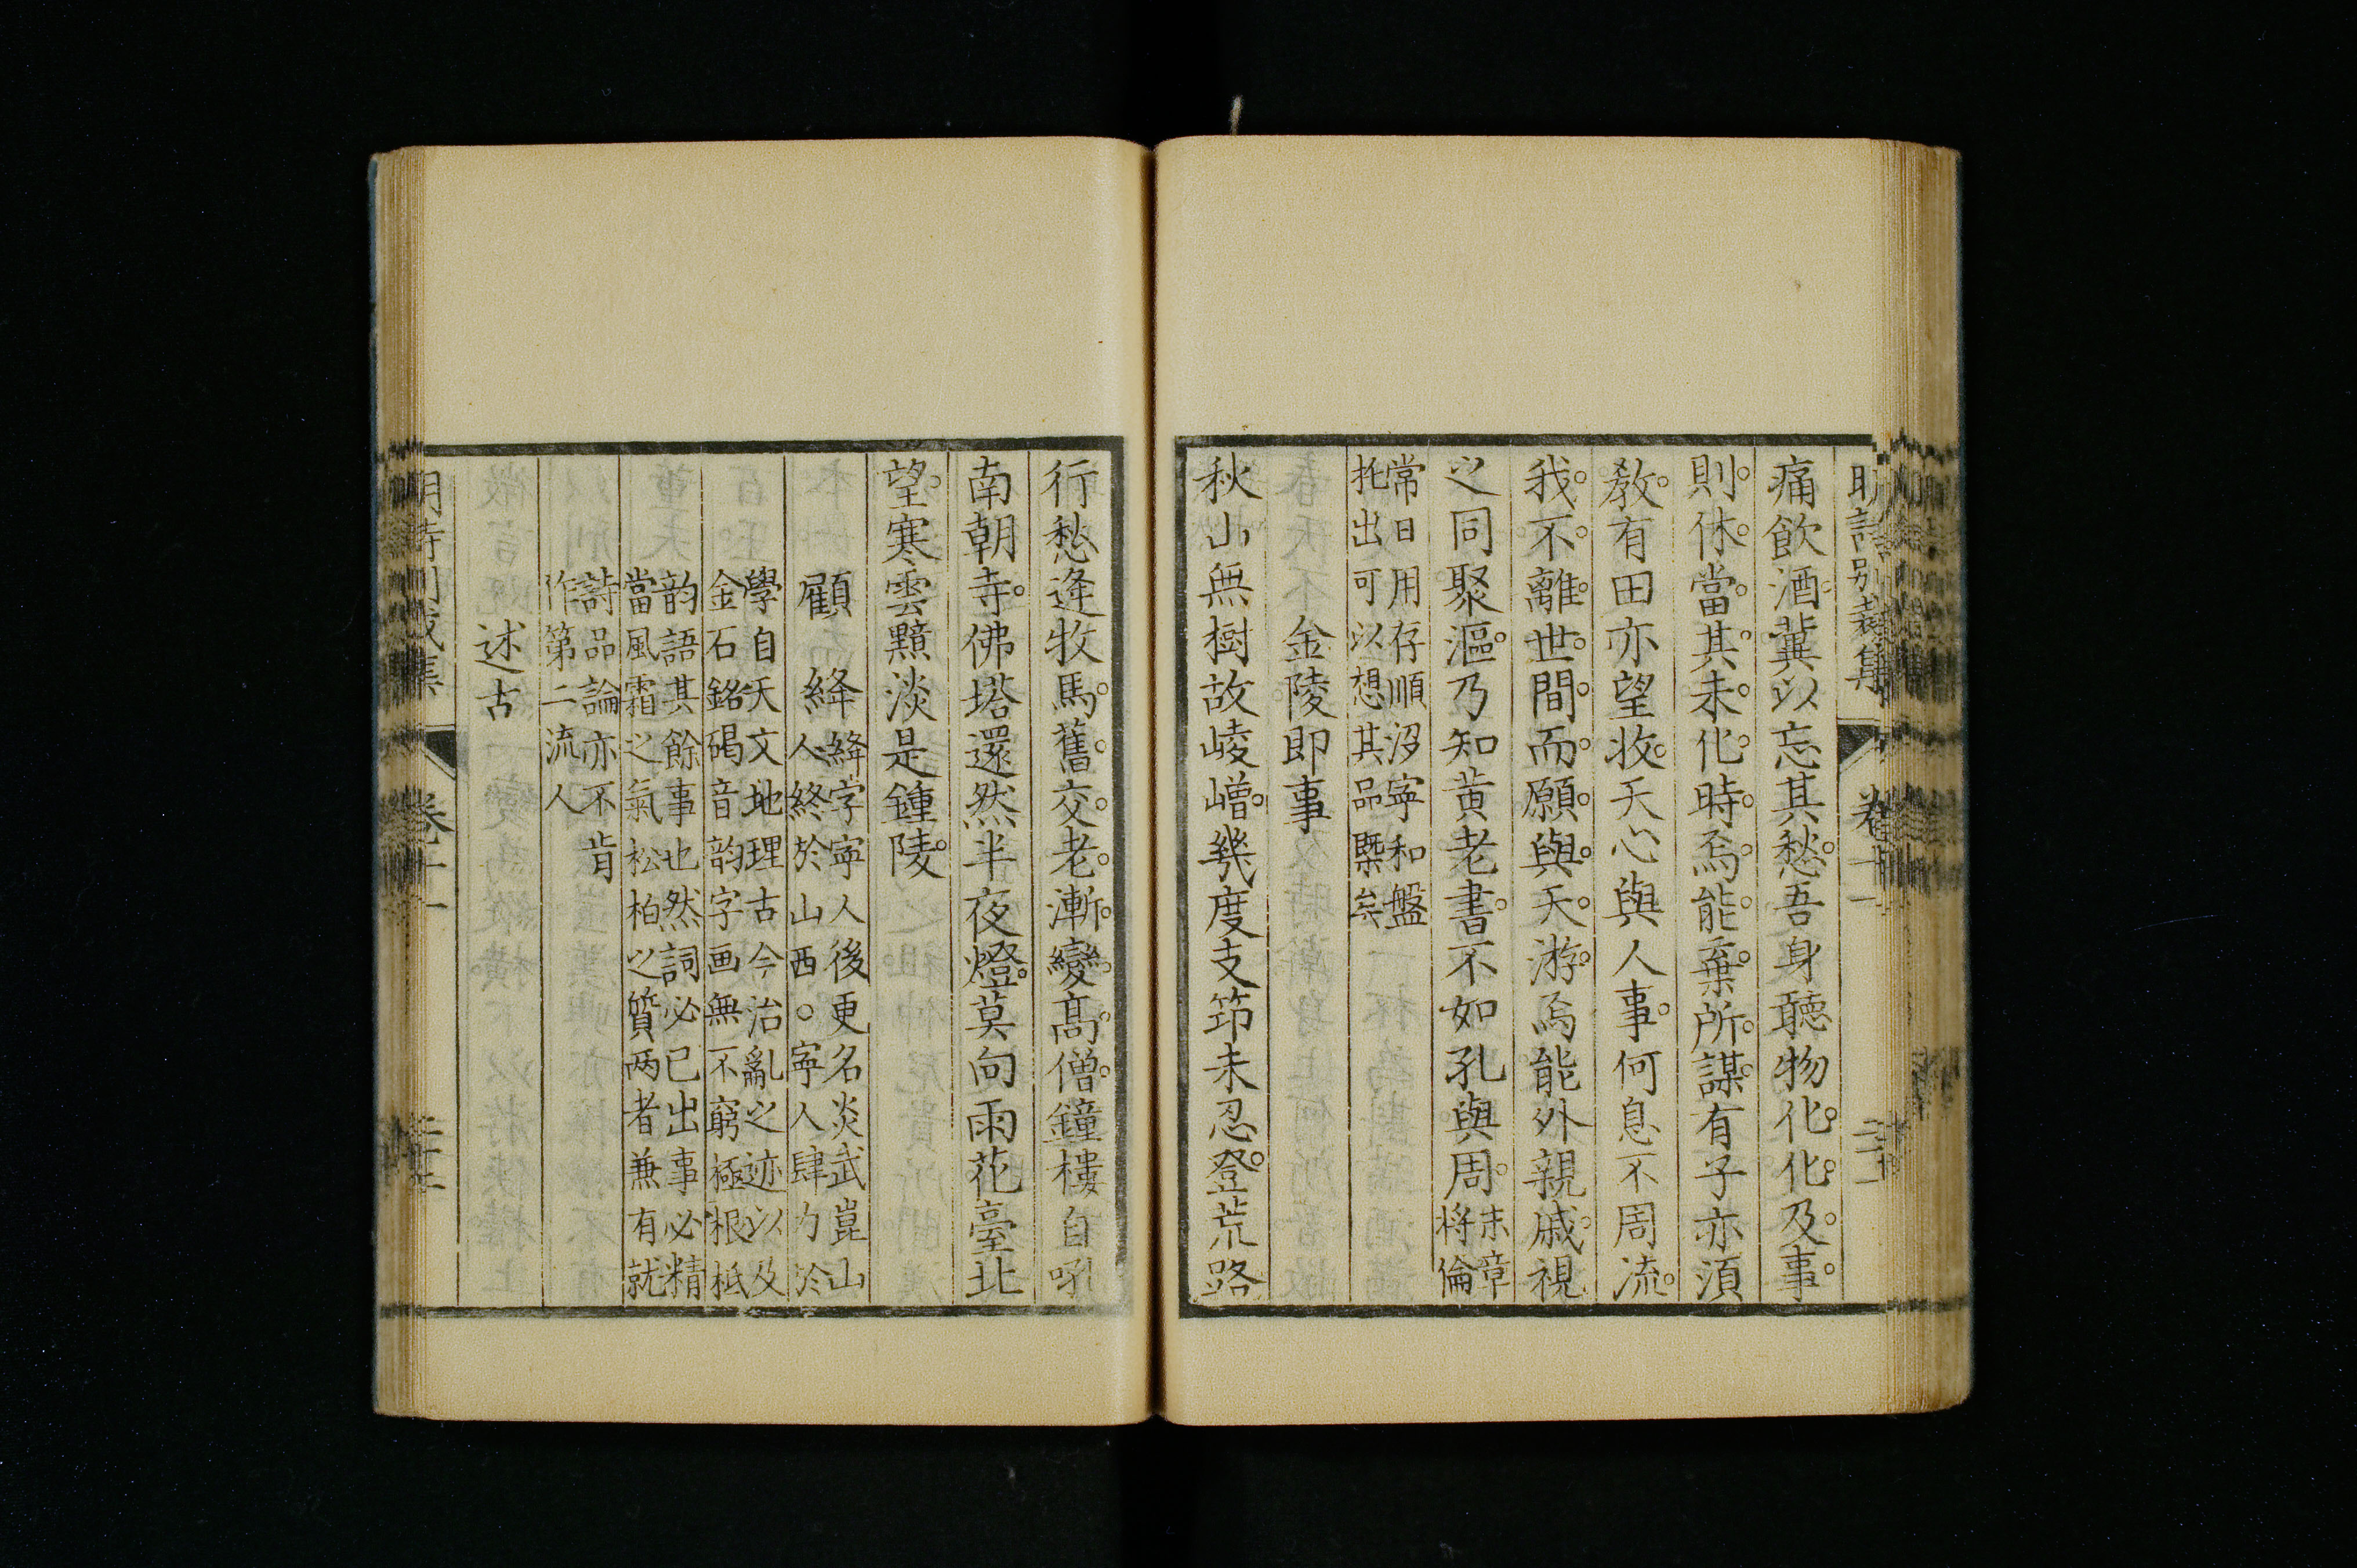 痛飲酒冀以忘其愁吾身聽物化化及事
則休當其未化時焉能棄所謀有子亦須
敎有田亦望收天心與人事何息不周流
我不離世間而願與天游焉能外親戚視
之同聚漚乃知黄老書不如孔與周末章
將倫
常日用存順沒寜和盤
托出可以想其品槩矣
金陵即事
秋山無樹故崚嶒幾度支筇未忍登荒路
行愁逢牧馬舊交老漸變髙僧鐘樓自吼
南朝寺佛塔還然半夜燈莫向雨花臺北
望寒雲黯淡是鍾陵
顧絳絳字寜人後更名炎武崑山
人終於山西○寜人肆力於
學自天文地理古今治亂之迹以及
金石銘碣音韵字画無不窮極根柢
韵語其餘事也然詞必已出事必精
當風霜之氣松柏之質两者兼有就
詩品論亦不肯
作第二流人
述古
明詩别裁集
卷十一